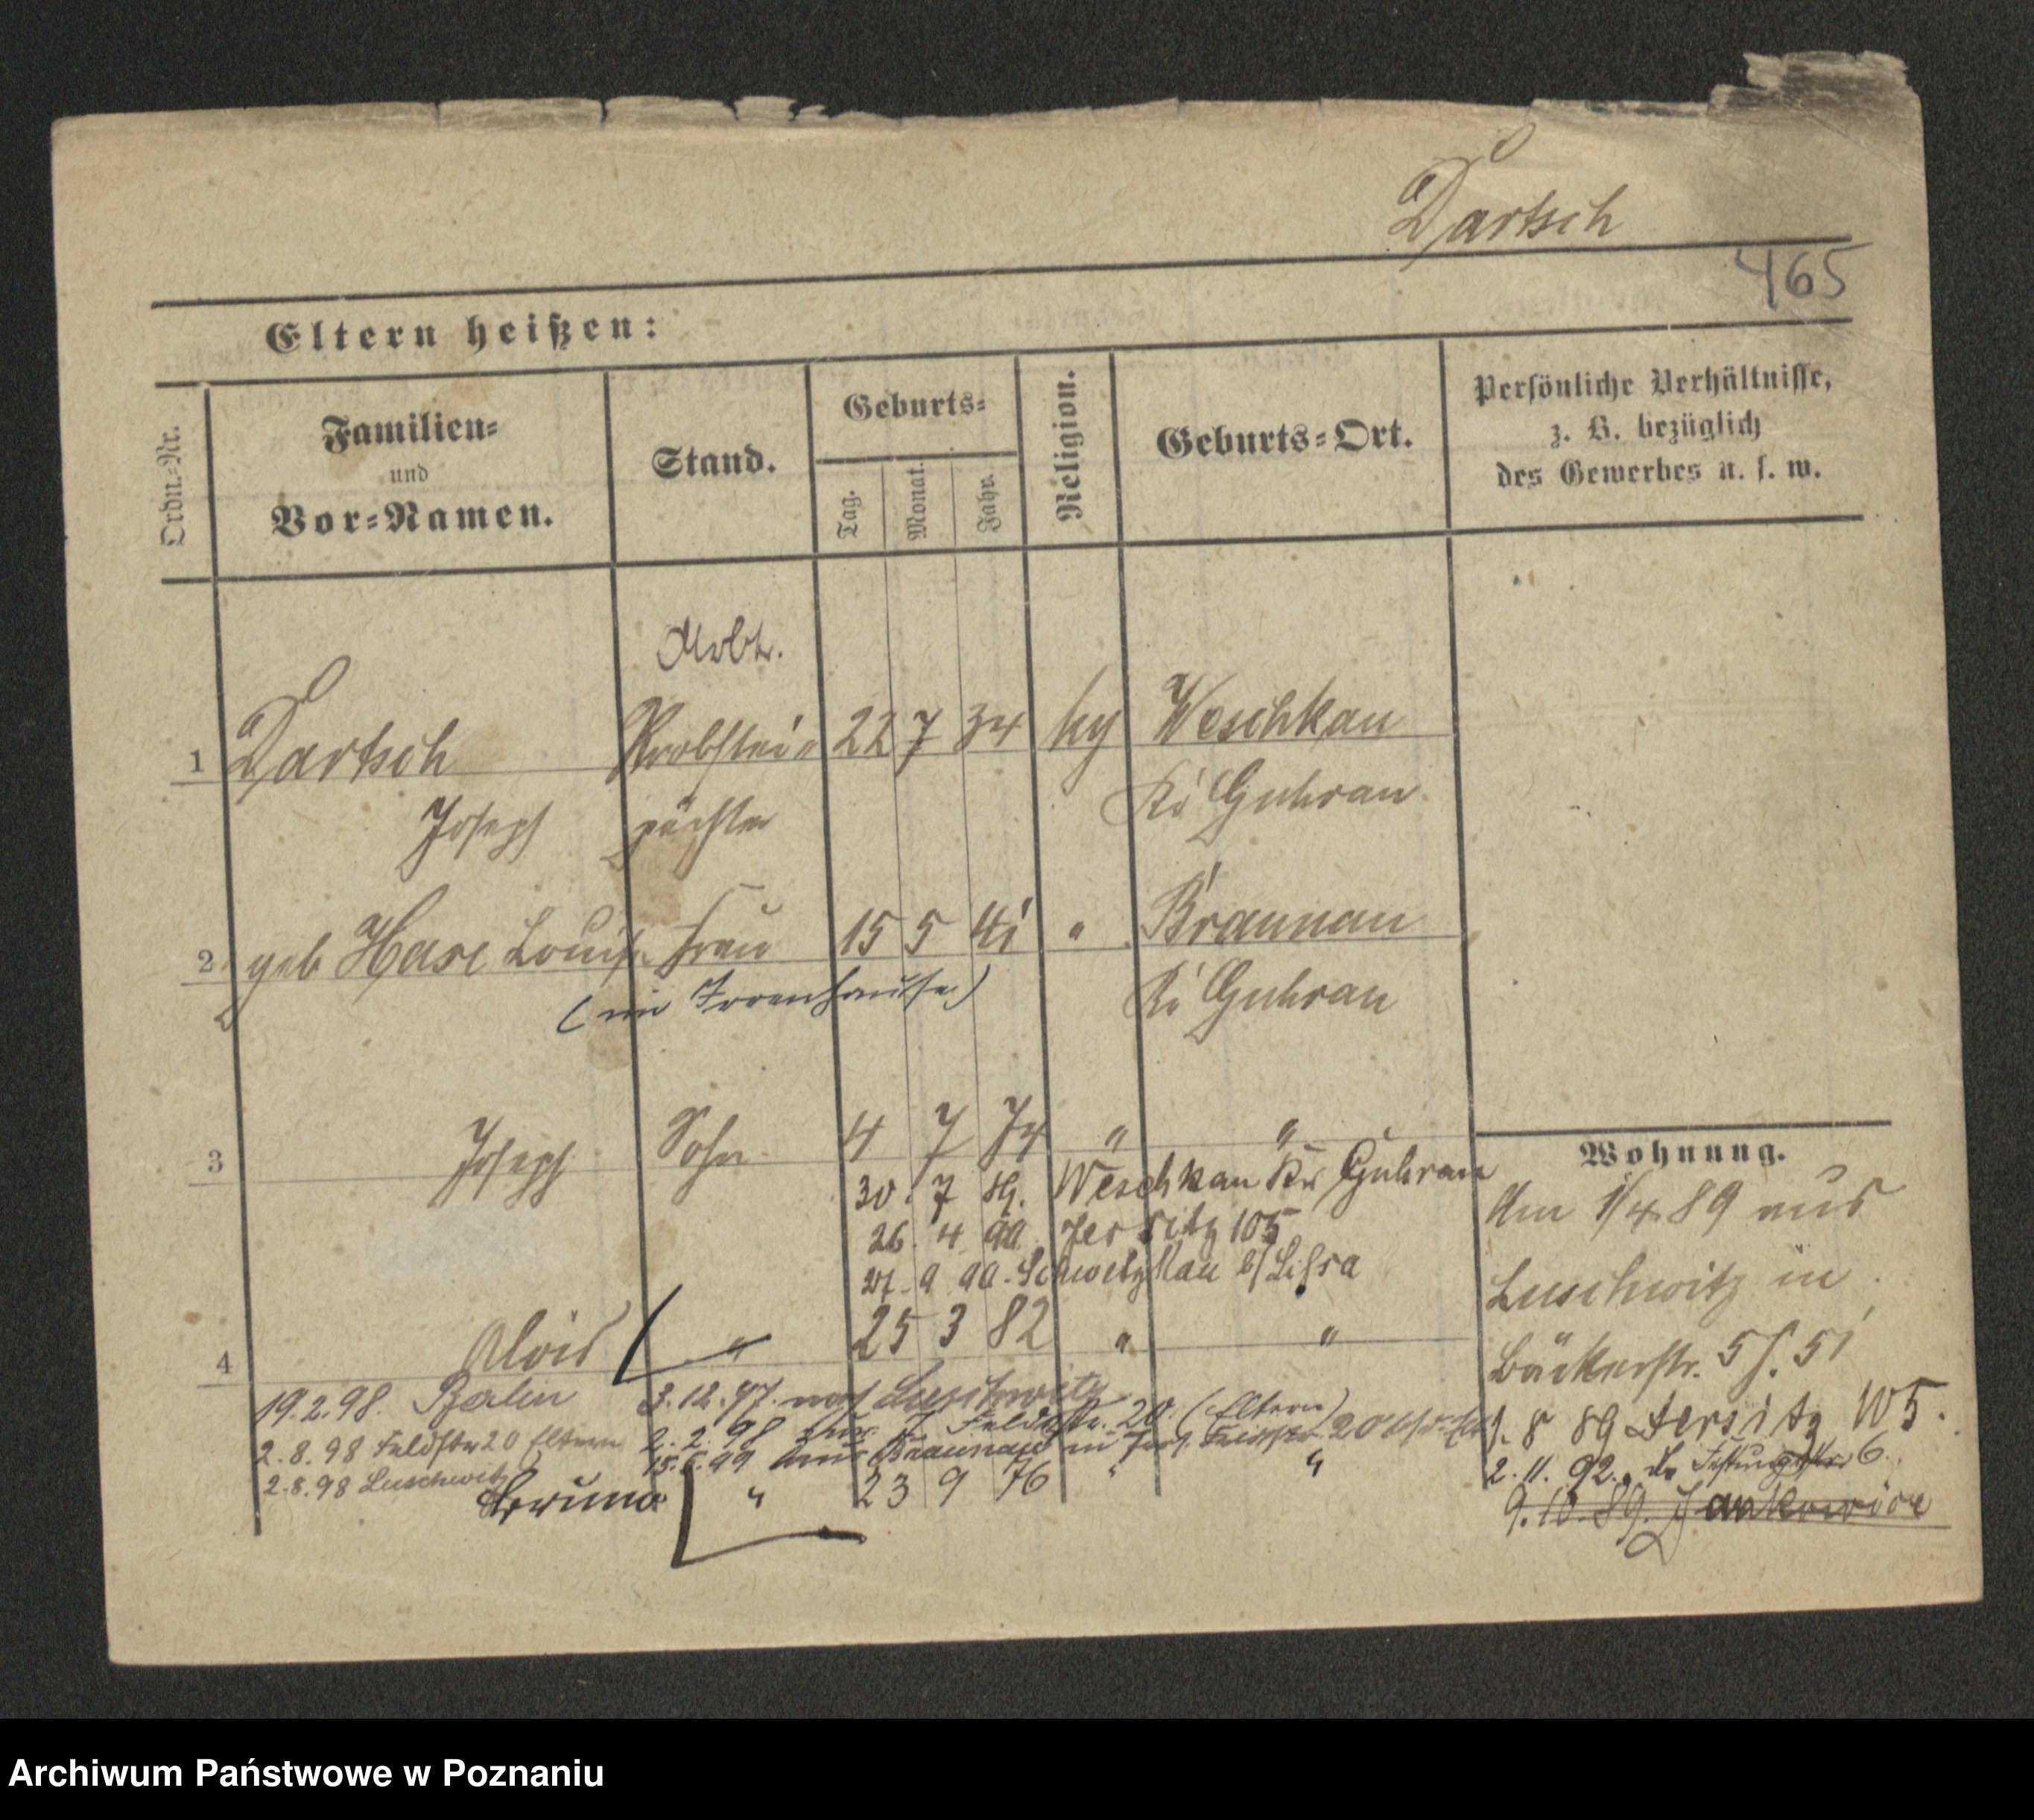 Dartsch
465
Eltern heißen:
Ordn.-Nr.
Familien-
und
Vor-Namen.
Stand.
Geburts-
Tag.
Monat.
Jahr.
Religion.
Geburts-Ort.
Persönliche Verhältnisse,
z. B. bezüglich
des Gewerbes u. s. w.
Arbt.
1 Dartsch 22 7 34 kg Weschkau
Joseph pächter Kr Guhrau
2 geb Hase Louise Frau 15 5 41 " Braunau
(im Irrenhause) Kr Guhrau
3 Joseph Sohn 4 7 74 " "
30. 7 89. Weschkau Kr Guhrau
26. 4. 90 Jersitz 105
27. 9 90. Schwetzkau b/ Lissa
4 Alois " 25 3 82 " "
19.2.98. Berlin 3.12.97. nach Luschwitz
2.8.98 Feldstr 20 Eltern 2. 2. 98 Feldstr. 20. (Eltern)
2.8.98 Luschwitz 15.5.99 aus Braunau in Jers. Feldstr 20
Bruno " 23 9 76 " "
Wohnung.
Am 1/4 89 aus
Luschwitz in
Bäckerstr. 5 b. 51
1. 8 89 Jersitz 105.
2. 11. 92. do 6.
9. 10. 89. Jankowice